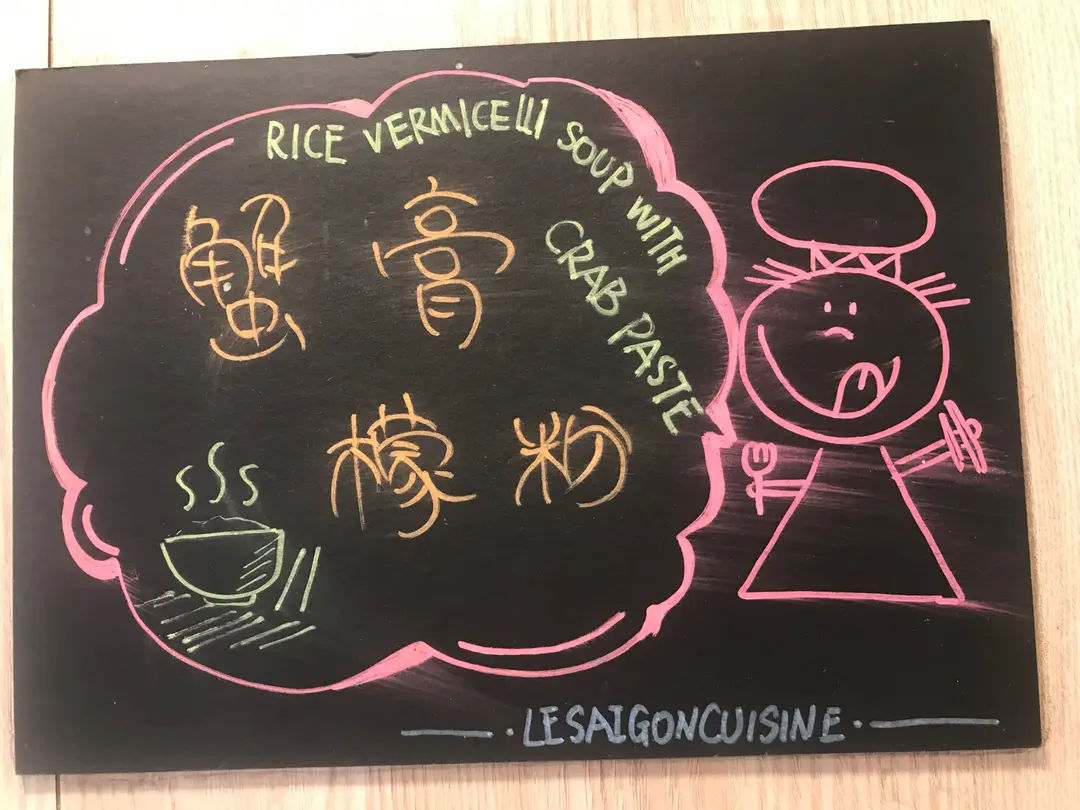 RICE VERMICELLI SOUP WITH
CRAB PASTE
蟹膏
檬粉
·LESAIGONCUISINE·